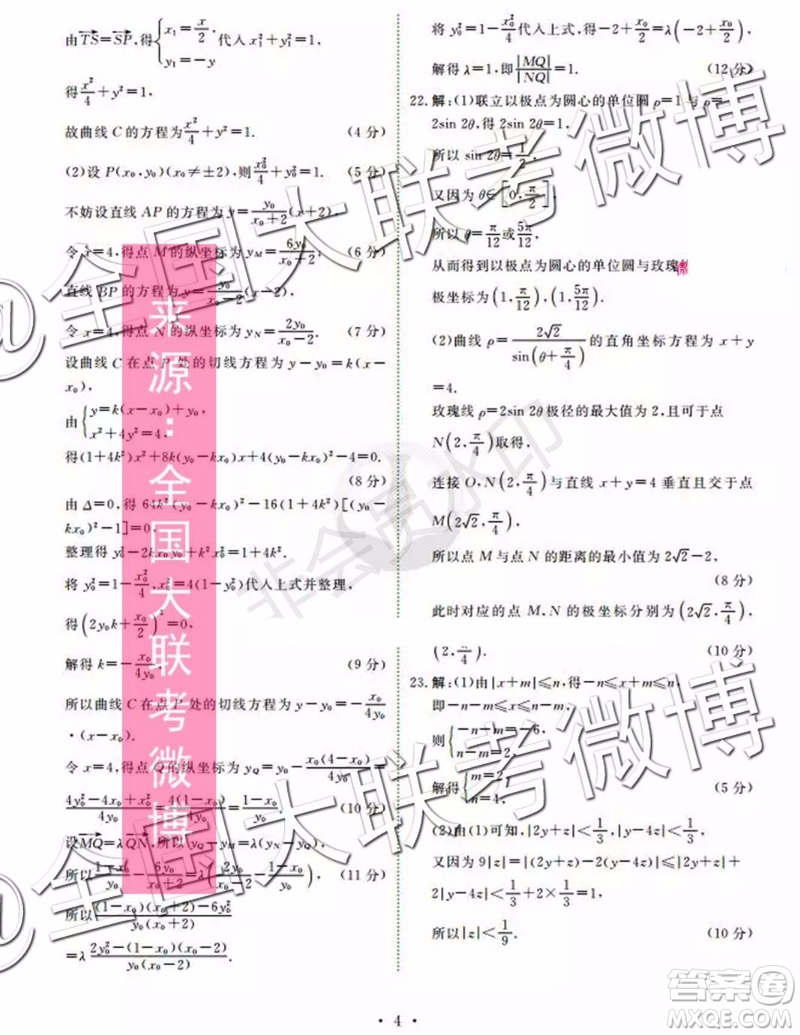 由TS=SP,得{x₁=x/2, y₁=-y 代入x₁²+y₁²=1,
得x²/4+y²=1.
故曲线 C 的方程为x²/4+y²=1. (4 分)
(2)设 P(x₀,y₀)(x₀≠±2),则x₀²/4+y₀²=1.
不妨设直线 AP 的方程为y=y₀/(x₀+2)(x+2),
令 x=4,得点 M 的纵坐标为 y_M=6y₀/(x₀+2); (6 分)
直线 BP 的方程为y=y₀/(x₀-2)(x-2),
令 x=4,得点 N 的纵坐标为 y_N=2y₀/(x₀-2); (7 分)
设曲线 C 在点 P 处的切线方程为y-y₀=k(x-
x₀),
由{y=k(x-x₀)+y₀, x²+4y²=4,
得(1+4k²)x²+8k(y₀-kx₀)x+4(y₀-kx₀)²-4=0.
(8 分)
由 Δ=0,得 64k²(y₀-kx₀)²-16(1+4k²)[(y₀-
kx₀)²-1]=0.
整理得 y₀²-2kx₀y₀+k²x₀²=1+4k².
将 y₀²=1-x₀²/4,x₀²=4(1-y₀²)代入上式并整理,
得(2y₀k+x₀/2)²=0,
解得 k=-x₀/4y₀. (9 分)
所以曲线 C 在点 P 处的切线方程为 y-y₀=-x₀/4y₀
·(x-x₀).
令 x=4,得点 Q 的纵坐标为 y_Q=y₀-x₀(4-x₀)/4y₀=
(4y₀²-4x₀+x₀²)/4y₀=4(1-x₀)/4y₀=(1-x₀)/y₀. (10 分)
设MQ=λQN,所以 y_Q-y_M=λ(y_N-y_Q).
所以(1-x₀)/y₀-6y₀/(x₀+2)=λ(2y₀/(x₀-2)-(1-x₀)/y₀). (11 分)
所以((1-x₀)(x₀+2)-6y₀²)/(y₀(x₀+2))
=λ(2y₀²-(1-x₀)(x₀-2))/(y₀(x₀-2)).
将 y₀²=1-x₀²/4代入上式,得-2+x₀/2=λ(-2+x₀/2),
解得 λ=1,即|MQ|/|NQ|=1. (12 分)
22. 解:(1)联立以极点为圆心的单位圆 ρ=1 与 ρ=
2sin 2θ,得 2sin 2θ=1,
所以 sin 2θ=1/2.
又因为 θ∈[0,π/2],
所以 θ=π/12或5π/12,
从而得到以极点为圆心的单位圆与玫瑰
极坐标为(1,π/12),(1,5π/12).
(2)曲线 ρ=2√2/sin(θ+π/4)的直角坐标方程为 x+y
=4.
玫瑰线 ρ=2sin 2θ极径的最大值为 2,且可于点
N(2,π/4)取得,
连接 O,N(2,π/4)与直线 x+y=4 垂直且交于点
M(2√2,π/4).
所以点 M 与点 N 的距离的最小值为 2√2-2,
(8 分)
此时对应的点 M,N 的极坐标分别为(2√2,π/4),
(2,π/4). (10 分)
23. 解:(1)由|x+m|≤n,得-n≤x+m≤n,
即-n-m≤x≤n-m,
则{-n-m=-6, n-m=2,
解得{m=2, n=4. (5 分)
(2)由(1)可知,|2y+z|<1/3,|y-4z|<1/3,
又因为 9|z|=|(2y+z)-2(y-4z)|≤|2y+z|+
2|y-4z|<1/3+2×1/3=1,
所以|z|<1/9. (10 分)
• 4 •
@全国大联考微博
@全国大联考微博
来源:全国大联考微博
非会员水印
答案圈
MXQE.COM